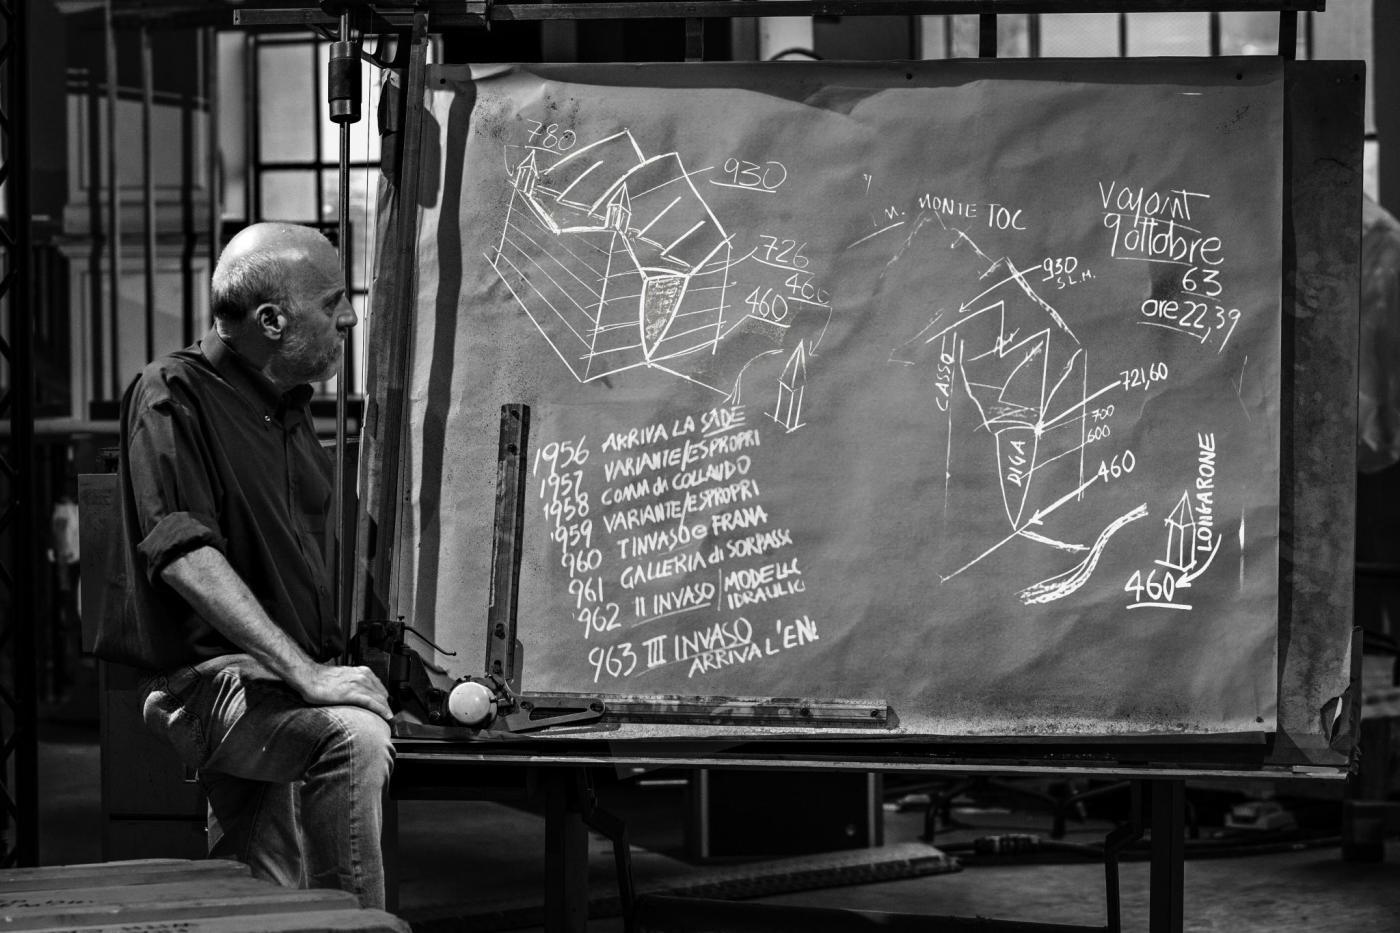 780
930
726
460
460
1956 ARRIVA LA SADE
1957 VARIANTE/ESPROPRI
1958 COMM di COLLAUDO
1959 VARIANTE/ESPROPRI
960 I INVASO e FRANA
961 GALLERIA di SORPASS
1962 II INVASO | MODELLO
IDRAULIC
963 III INVASO
ARRIVA L'EN
M. MONTE TOC
930
S.L.M.
CASSO
DIGA
721,60
700
600
460
LONGARONE
460
Vajont
9 ottobre
63
ore 22,39